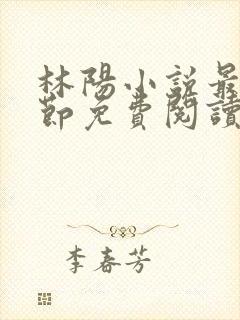 林陽小說最
節免費閱讀
李春芳